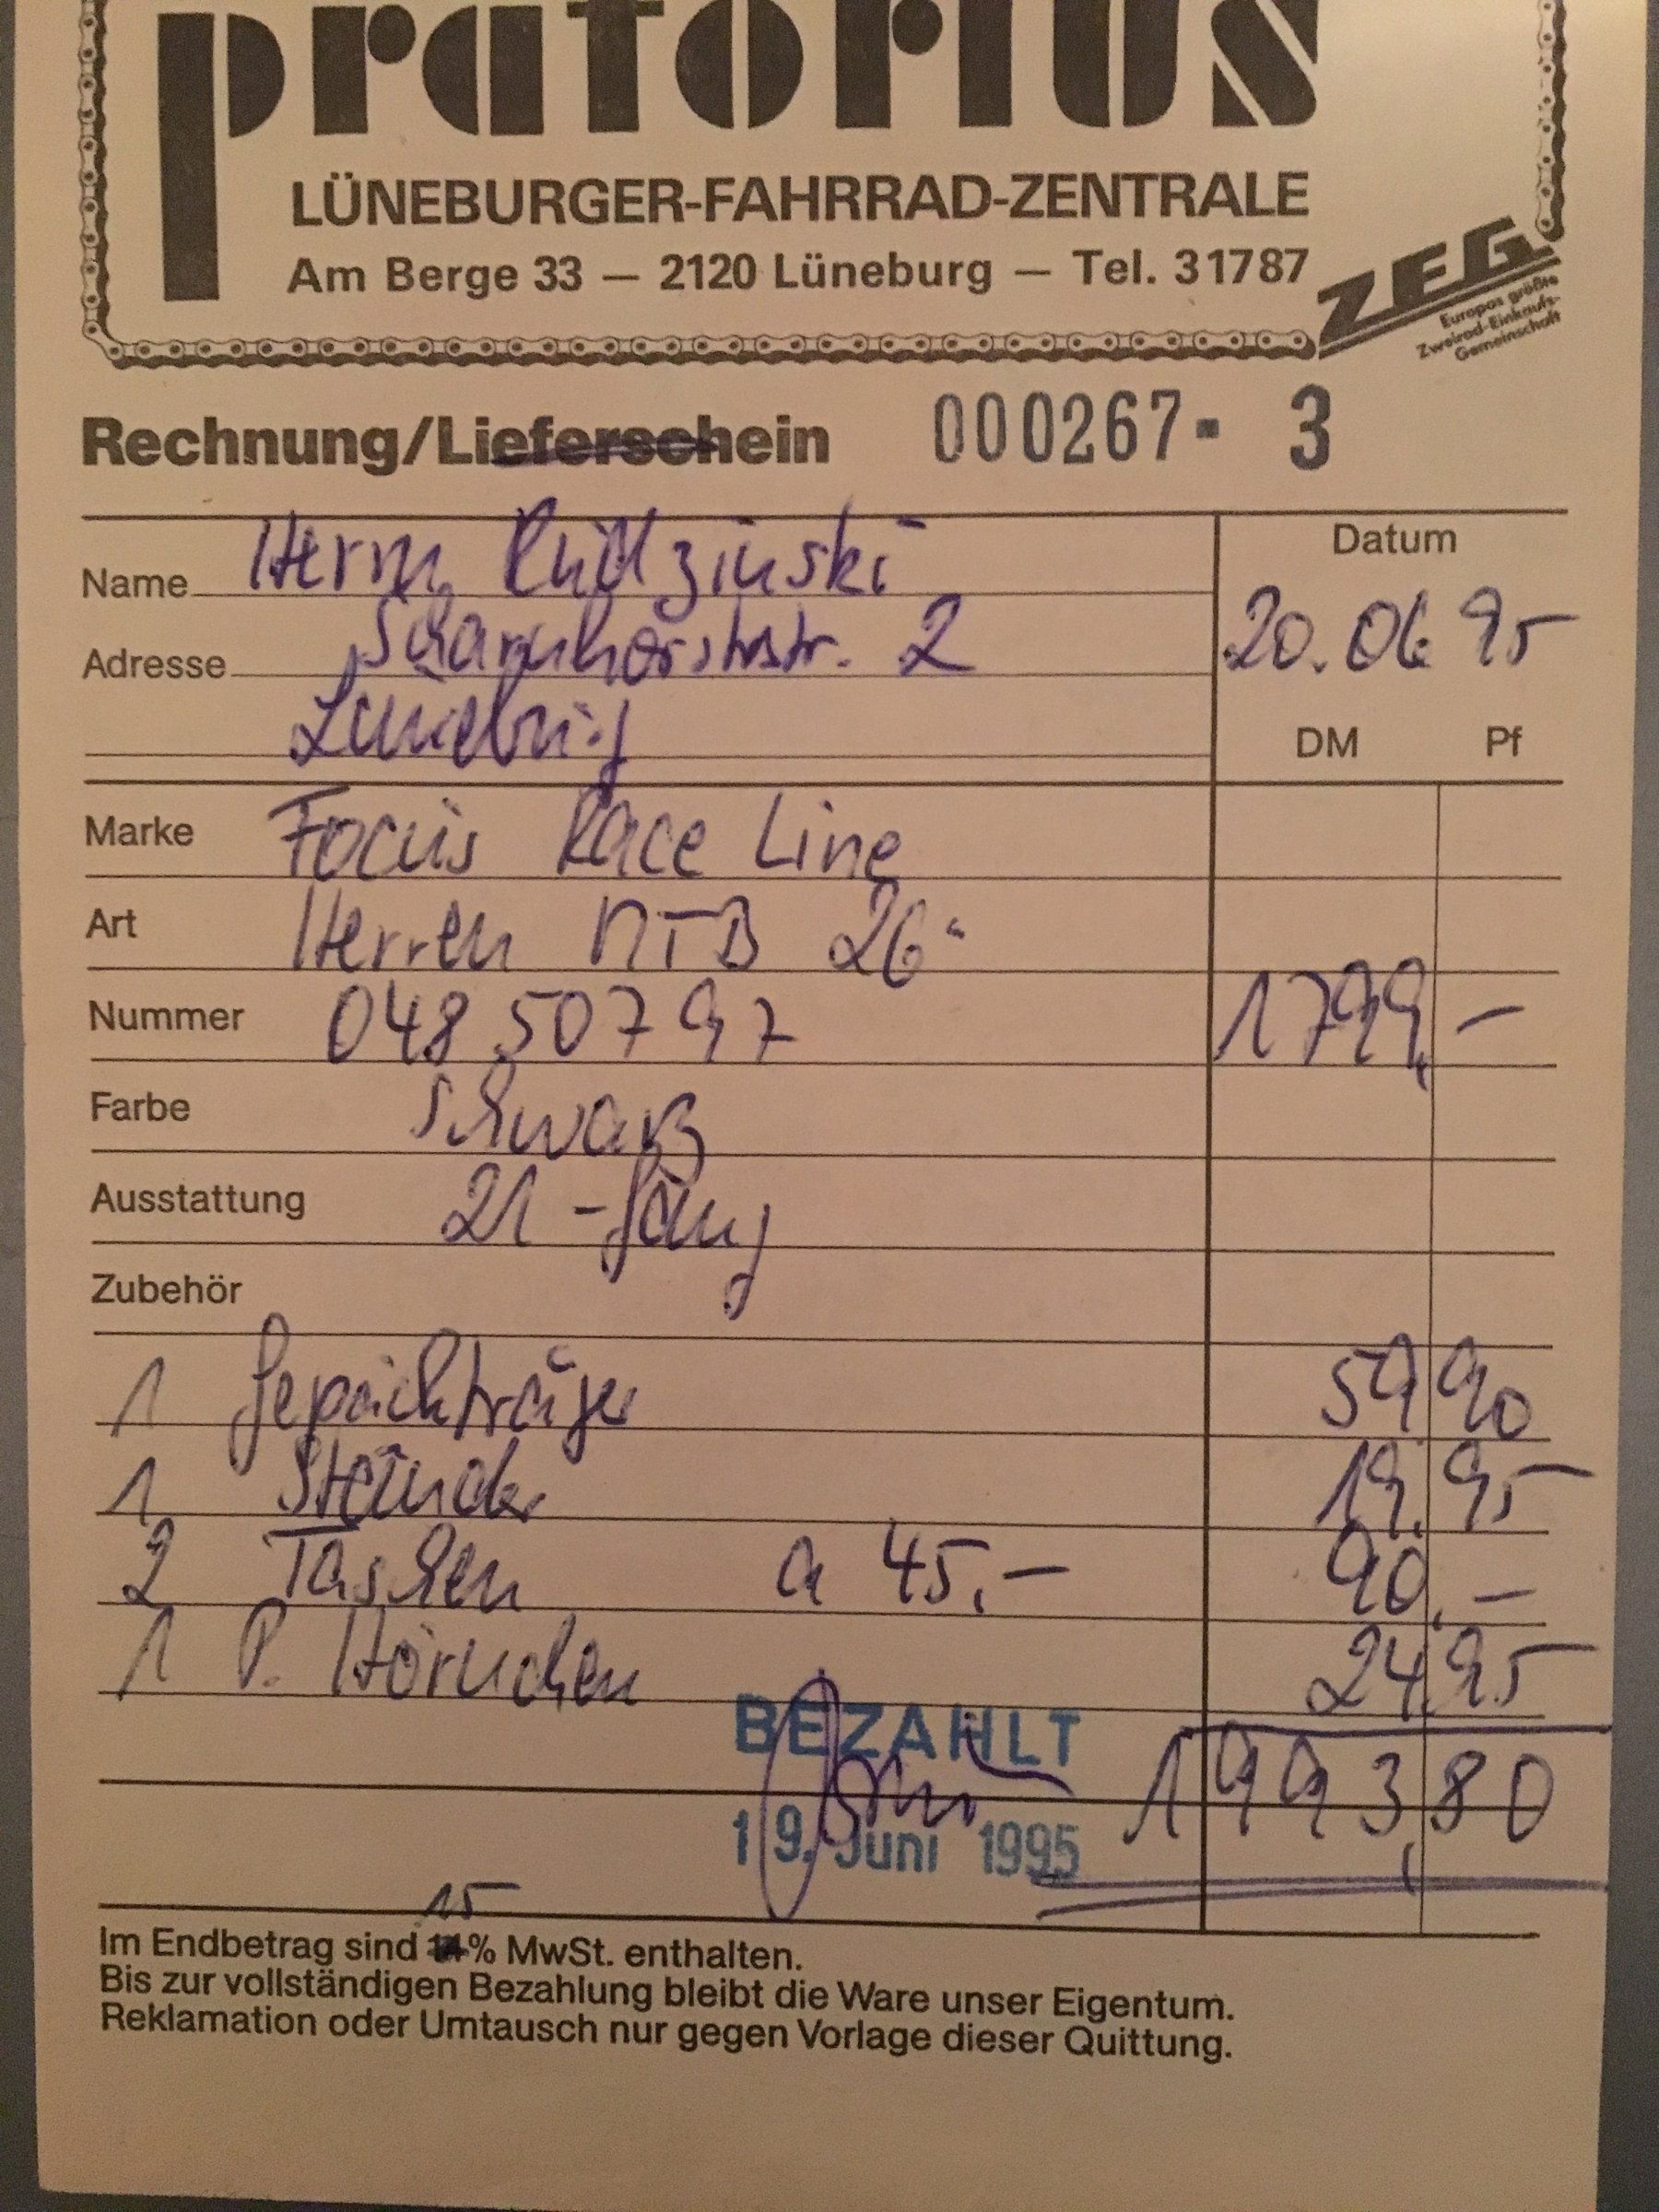 prätorius
LÜNEBURGER-FAHRRAD-ZENTRALE
Am Berge 33 — 2120 Lüneburg — Tel. 31787
ZEG
Europas größte
Zweirad-Einkaufs-
Gemeinschaft
Rechnung/Lieferschein 000267- 3
Datum
Name Herrn Rudzinski
Adresse Scharnhorststr. 2 20.06.95
Lüneburg
DM Pf
Marke Focus Race Line
Art Herren MTB 26"
Nummer 04850797 1799,-
Farbe Schwarz
Ausstattung 21-Gang
Zubehör
1 Gepäckträger 59,90
1 Ständer 19,95
2 Taschen a 45,- 90,-
1 P. Hörnchen 24,95
BEZAHLT 1993,80
19. Juni 1995
15
Im Endbetrag sind 14% MwSt. enthalten.
Bis zur vollständigen Bezahlung bleibt die Ware unser Eigentum.
Reklamation oder Umtausch nur gegen Vorlage dieser Quittung.